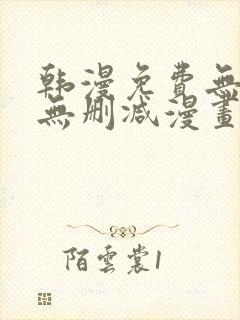 韩漫免费無
無删减漫畫
陌雲裳1